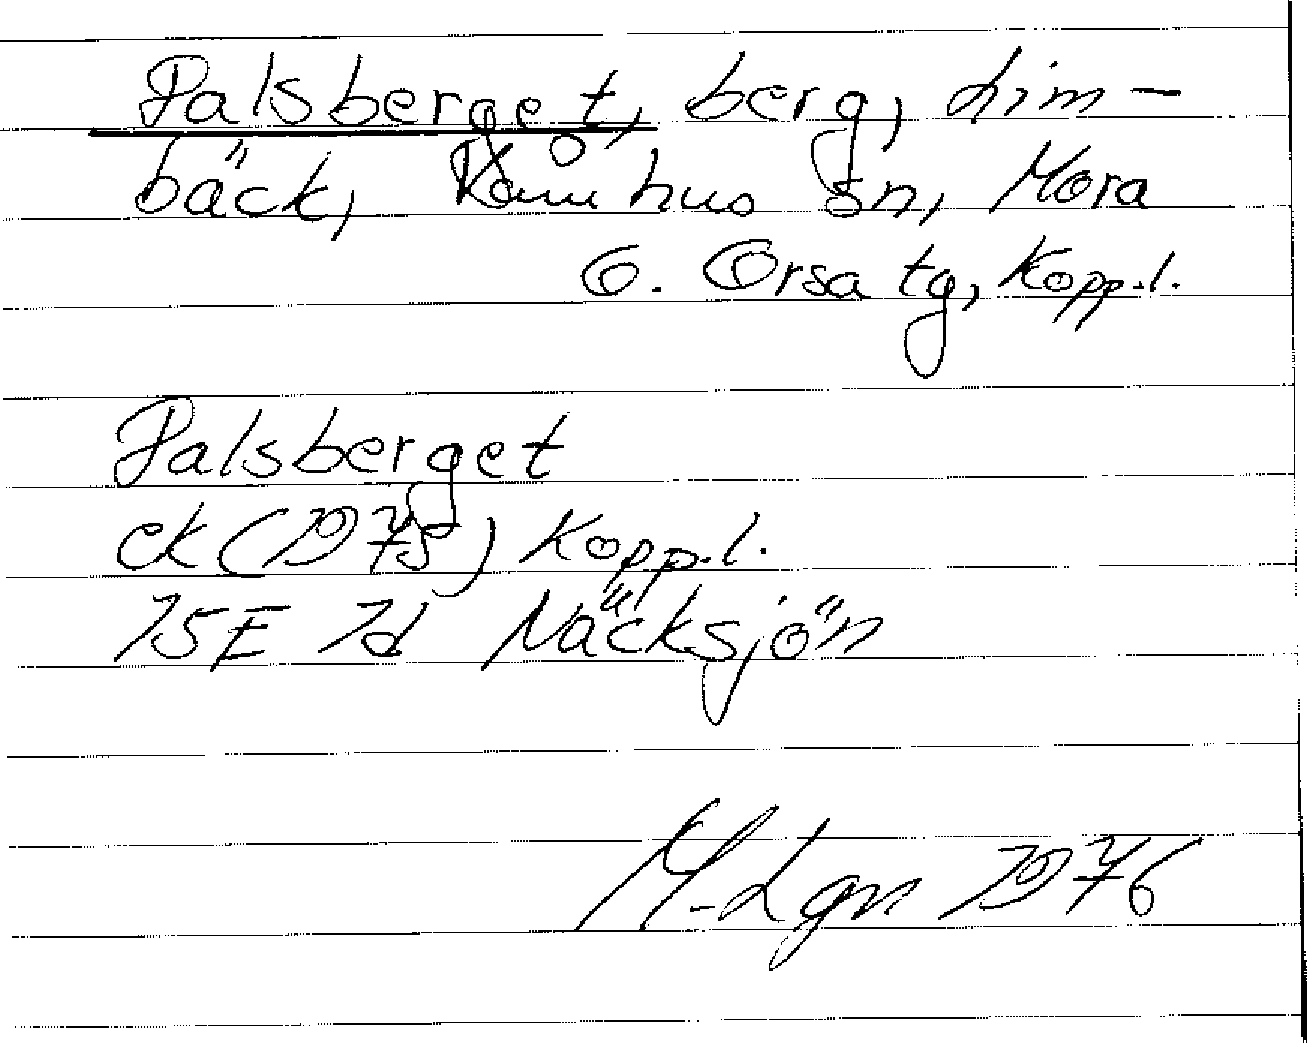 Palsberget, berg, Lim-
bäck, Venjans sn, Mora
o. Orsa tg, Kopp.l.
Palsberget
ek (1975) Kopp.l.
15E 7d Näcksjön
M. Lgn 1976